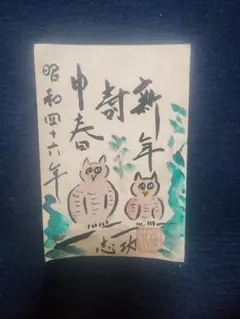 新年
寿
申春
昭和四十六年
志功